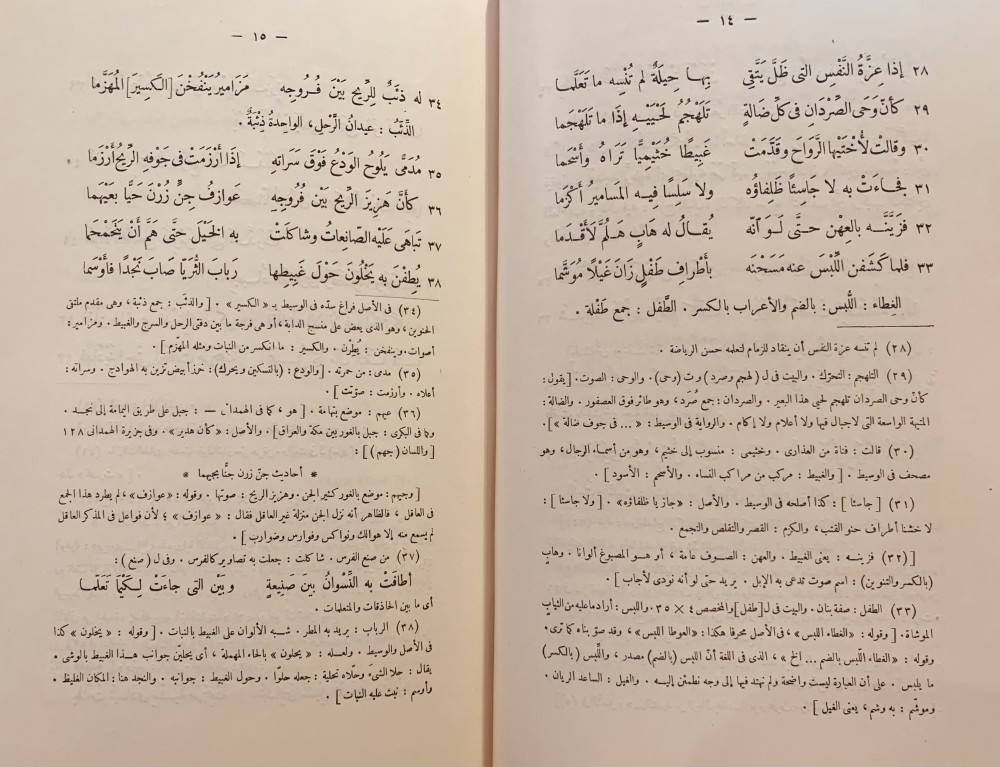 — ١٤ —
٢٨ إذا عِزَّةُ النَّفْسِ التى ظَلَّ يَتَّقِى بِها حِيلَةٌ لم تُنْسِه ما تَعَلَّما
٢٩ كأنّ وَحَى الصِّرْدانِ فى كلّ ضالةٍ تَلَهْجُمُ لَحْيَيْهِ إذَا ما تَلَهْجَما
٣٠ وقالتْ لأُخْتَيْها الرَّواحَ وقَدَّمَتْ غَبِيطًا خُثَيْمِيًّا تَرَاهُ وأَسْحَما
٣١ فجاءَتْ به لا جَاسِئًا ظَلِفاؤُه ولا سَلِسًا فيه المَسَامِيرُ أَكْزَما
٣٢ فزَيَّنَّه بالعِهْنِ حتَّى لَوَ انّه يُقالُ له هابٍ هَلُمَّ لَأَقْدَما
٣٣ فلما كَشَفْنَ اللِّبْسَ عنه مَسَحْنَه بأَطْرافِ طَفْلٍ زَانَ غَيْلًا مُوَشَّما
الغِطاء : اللُّبس : بالضم والأعراب بالكسر . الطَّفل : جمع طَفْلة .
(٢٨) لم تنسه عزة النفس أن ينقاد للزمام لتعلمه حسن الرياضة .
(٢٩) التلهجم : التحرّك . والبيت فى ل (لهجم وصرد) وت (وحى) . والوحى : الصوت . [ يقول :
كأنّ وحى الصردان تلهجم لحيى هذا البعير . والصردان : جمع صُرَد ، وهو طائر فوق العصفور . والضالة :
المتيهة الواسعة التى لاجبال فيها ولا أعلام ولا إكام . والرواية فى الوسيط : « ... فى جوف ضالة » ] .
(٣٠) قالت : فتاة من العذارى . وخثيمى : منسوب إلى خثيم ، وهو من أسماء الرجال ، وهو
مصحف فى الوسيط . [ والغبيط : مركب من مراكب النساء . والأسحم : الأسود ] .
(٣١) [ جاسئا ] : كذا أصلحه فى الوسيط . والأصل : « جاز يا ظلفاؤه » . [ ولا جاسئا ] :
لا خشنا أطراف حنو القتب ، والكزم : القصر والتقلص والتجمع .
[ (٣٢) فزينه : يعنى الغبيط . والعهن : الصوف عامة ، أو هو المصبوغ ألوانا . وهابٍ
(بالكسر والتنوين) : اسم صوت تدعى به الإبل . يريد حتى لو أنه نودى لأجاب ] .
(٣٣) الطفل : صفة بنان . والبيت فى ل [ طفل ] والمخصص ٤ × ٣٥ . واللبس : أراد ما عليه من الثياب
الموشاة . [ وقوله : « الغطاء اللبس » ، فى الأصل محرفا هكذا : « العوطا اللبس » ، وقد صوّبناه كما ترى .
وقوله : « الغطاء اللّبس بالضم ... الخ » ، الذى فى اللغة أنّ اللبس (بالضم) مصدر ، واللِّبس (بالكسر)
ما يلبس . على أن العبارة ليست واضحة ولم نهتد فيها إلى وجه نطمئن إليه . والغيل : الساعد الريان .
وموشّم : به وشم ، يعنى الغيل ] .
— ١٥ —
٣٤ له ذئَبٌ لِلرِّيحِ بَيْنَ فُروجِه مَزَامِيرُ يَنْفُخْنَ [الكَسِيرَ] المُهَزَّما
الذِّئَبُ : عيدانُ الرَّحلِ ، الواحدةُ ذِئْبَةٌ .
٣٥ مُدَمًّى يَلُوحُ الوَدْعُ فَوْقَ سَرَاتِه إذَا أرْزَمَتْ فى جَوْفِه الرِّيحُ أَرْزَما
٣٦ كأَنَّ هَزِيزَ الرِّيحِ بَيْنَ فُرُوجِهِ عَوَازِفُ جِنٍّ زُرْنَ حَيًّا بعَيْهَما
٣٧ تَباهَى عَلَيْهِ الصّانِعاتُ وشاكَلَتْ به الخَيْلَ حتَّى هَمَّ أَنْ يَتَحَمْحَما
٣٨ يُطِفْنَ به يَحْلُونَ حَوْلَ غَبِيطِها رَبابَ الثُّرَيَّا صَابَ نَجْدًا فأَوْسَما
(٣٤) فى الأصل فراغ سدّه فى الوسيط بـ « الكسير » . [ والذئب : جمع ذئبة ، وهى مقدم ملتقى
الحنوين ، وهو الذى يعض على منسج الدابة ، أو هى فرجة ما بين دفتى الرحل والسرج والغبيط . ومزامير :
أصوات . وينفخن : يُطِرن . والكسير : ما انكسر من النبات ومثله المهزّم ] .
(٣٥) مدمى : من حمرته . [ والودع : (بالتسكين ويحرك) : خرز أبيض تزين به الهوادج . وسراته :
أعلاه . وأرزمت : صوّتت ] .
(٣٦) عيهم : موضع بتهامة . [ هو ، كما فى الهمدانى — : جبل على طريق اليمامة إلى نجد .
وما فى البكرى : جبل بالغور بين مكة والعراق ] . والأصل : « كأن هدير » . وفى جزيرة الهمدانى ١٢٨
[ واللسان (جهم) ] :
* أحاديث جنّ زرن جنًّا بجيهما *
[ وجيهم : موضع بالغور كثير الجن . وهزيز الريح : صوتها . وقوله : « عوازف » ، لم يطرد هذا الجمع
فى العاقل ، فالظاهر أنه نزل الجن منزلة غير العاقل فقال : « عوازف » ؛ لأن فواعل فى المذكر العاقل
لم يسمع منه إلا هوالك ونواكس وفوارس وضوارب ] .
(٣٧) من صنع الفرس . شاكلت : جعلت به تصاوير كالفرس . وفى ل (صنع) :
أطافَتْ به النِّسْوانُ بينَ صَنِيعةٍ وبَيْن التى جاءَتْ لِكَيْما تَعَلَّما
أى ما بين الحاذقات والمتعلمات .
(٣٨) الرباب : يريد به المطر . شبه الألوان على الغبيط بالنبات . [ وقوله : « يخلون » كذا
فى الأصل والوسيط . ولعله : « يحلون » بالحاء المهملة ، أى يحلين جوانب هذا الغبيط بالوشى .
يقال : حلا الشىء وحلاه تحلية : جعله حلوا . وحول الغبيط : جوانبه . والنجد هنا : المكان الغليظ .
وأوسم : نبت عليه النبات ] .